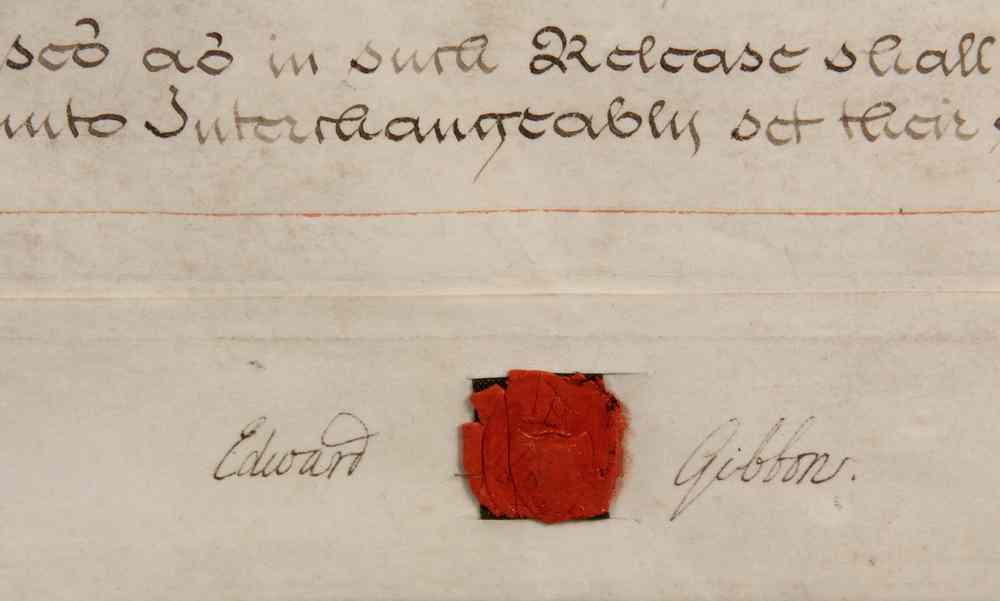 sed as in such Release shall
unto Interchangeably set their
Edward Gibbon.